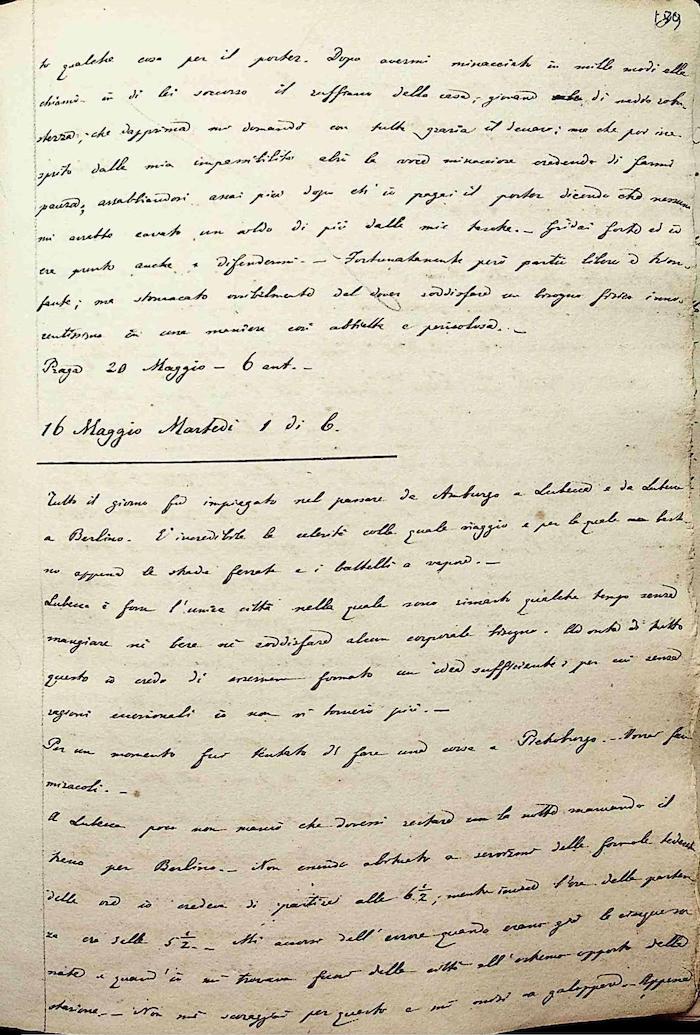 199
to qualche cosa per il porter. Dopo avermi minacciato in mille modi ella
chiamò in di lei soccorso il ruffiano della casa; giovane di
che dapprima mi domandò con tutta grazia il denaro; ma che poi ina-
sprito dalla mia impassibilità alzò la voce minacciosa credendo di farmi
paura, arrabbiandosi assai più dopo ch'io pagai il porter dicendo che nessuno
mi avrebbe cavato un soldo di più dalle mie tasche. – Gridai forte ed io
era pronto anche a difendermi. – Fortunatamente però partii libero e trion-
fante; ma stomacato orribilmente del dover soddisfare un bisogno fisico inno-
centissimo in una maniera così abbietta e pericolosa. –
Praga 20 Maggio – 6 ant. –
16 Maggio Martedì 1 di 6.
Tutto il giorno fu impiegato nel passare da Amburgo a Lubecca e da Lubecca
a Berlino. È incredibile la celerità colla quale viaggio e per la quale non basta-
no appena le strade ferrate e i battelli a vapore. –
Lubecca è forse l'unica città nella quale sono rimasto qualche tempo senza
mangiare nè bere nè soddisfare alcun corporale bisogno. Ad onta di tutto
questo io credo di essermene formato un'idea sufficiente; per cui senza
ragioni eccezionali io non vi tornerò più. –
Per un momento fui tentato di fare una corsa a Pietroburgo. – Vorrei far
miracoli. –
A Lubecca poco non mancò che dovessi restare con la notte mancando il
treno per Berlino. – Non essendo abituato a servirmi della formola tedesca
delle ore io credeva di partire alle 6 ½; mentre invece l'ora della parten-
za era delle 5 ½. – Mi accorsi dell'errore quando erano già le cinque suo-
nate e quand'io mi trovava fuori della città all'estremo opposto della
stazione. – Non mi scoraggiai per questo e mi misi a galoppare. – Appena